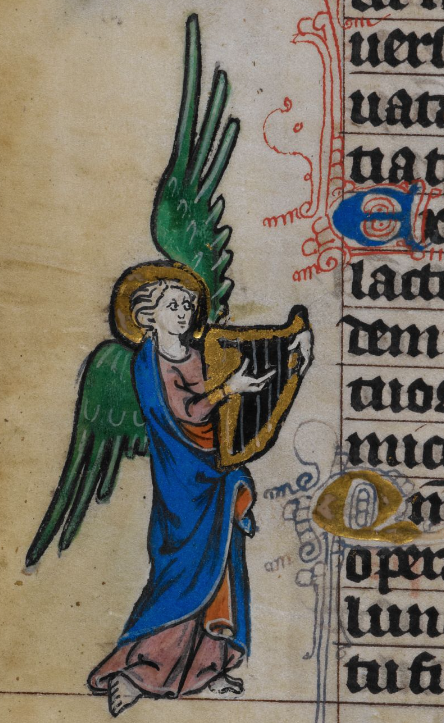 uers
uata
tia t
E
lact
dem
tuos
mic
Qn
opera
lun
tu fu